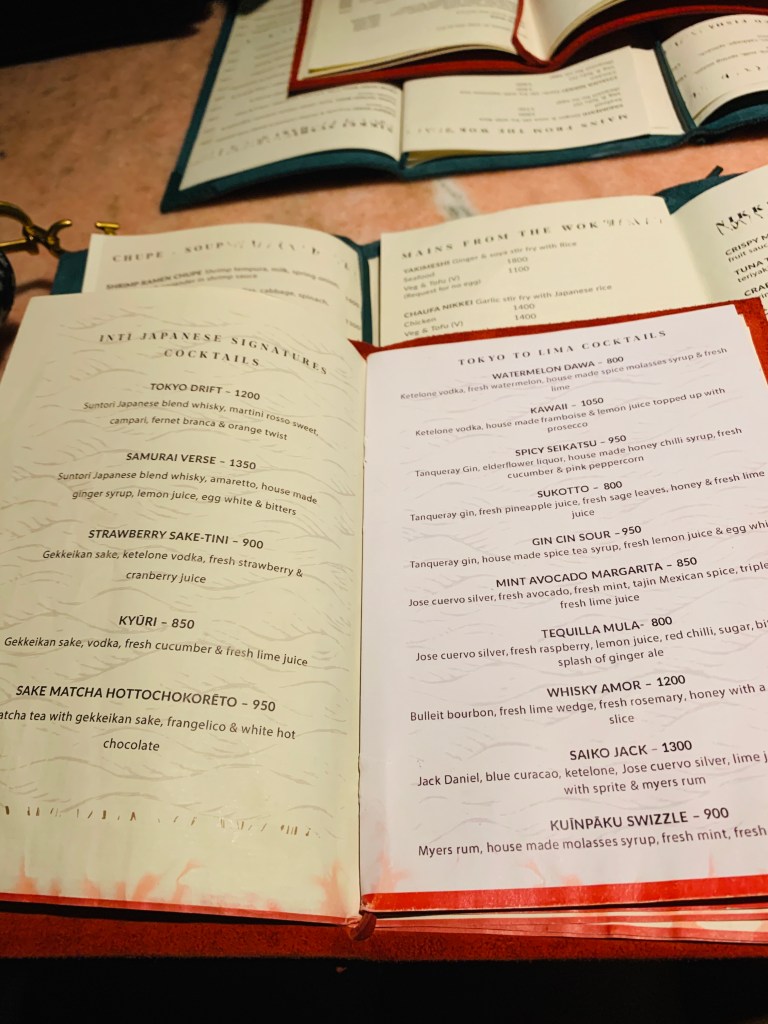 CHUPE - SOUP
SHRIMP RAMEN CHUPE Shrimp tempura, milk, spring onion,
cabbage, spinach,
MAINS FROM THE WOK
YAKIMESHI Ginger & soya stir fry with Rice
Seafood 1800
Veg & Tofu (V) 1100
(Request for no egg)
CHAUFA NIKKEI Garlic stir fry with Japanese rice
Chicken 1400
Veg & Tofu (V) 1400
NIKK
CRISPY M
fruit sauc
TUNA T
teriyak
CRAB
MAINS FROM THE WOK
INTI JAPANESE SIGNATURES
COCKTAILS
TOKYO DRIFT – 1200
Suntori Japanese blend whisky, martini rosso sweet,
campari, fernet branca & orange twist
SAMURAI VERSE – 1350
Suntori Japanese blend whisky, amaretto, house made
ginger syrup, lemon juice, egg white & bitters
STRAWBERRY SAKE-TINI – 900
Gekkeikan sake, ketelone vodka, fresh strawberry &
cranberry juice
KYŪRI – 850
Gekkeikan sake, vodka, fresh cucumber & fresh lime juice
SAKE MATCHA HOTTOCHOKORĒTO – 950
atcha tea with gekkeikan sake, frangelico & white hot
chocolate
TOKYO TO LIMA COCKTAILS
WATERMELON DAWA – 800
Ketelone vodka, fresh watermelon, house made spice molasses syrup & fresh
lime
KAWAII – 1050
Ketelone vodka, house made framboise & lemon juice topped up with
prosecco
SPICY SEIKATSU – 950
Tanqueray Gin, elderflower liquor, house made honey chilli syrup, fresh
cucumber & pink peppercorn
SUKOTTO – 800
Tanqueray gin, fresh pineapple juice, fresh sage leaves, honey & fresh lime
juice
GIN CIN SOUR –950
Tanqueray gin, house made spice tea syrup, fresh lemon juice & egg whi
MINT AVOCADO MARGARITA – 850
Jose cuervo silver, fresh avocado, fresh mint, tajin Mexican spice, triple
fresh lime juice
TEQUILLA MULA- 800
Jose cuervo silver, fresh raspberry, lemon juice, red chilli, sugar, bi
splash of ginger ale
WHISKY AMOR – 1200
Bulleit bourbon, fresh lime wedge, fresh rosemary, honey with a
slice
SAIKO JACK – 1300
Jack Daniel, blue curacao, ketelone, Jose cuervo silver, lime j
with sprite & myers rum
KUĪNPĀKU SWIZZLE – 900
Myers rum, house made molasses syrup, fresh mint, fresh